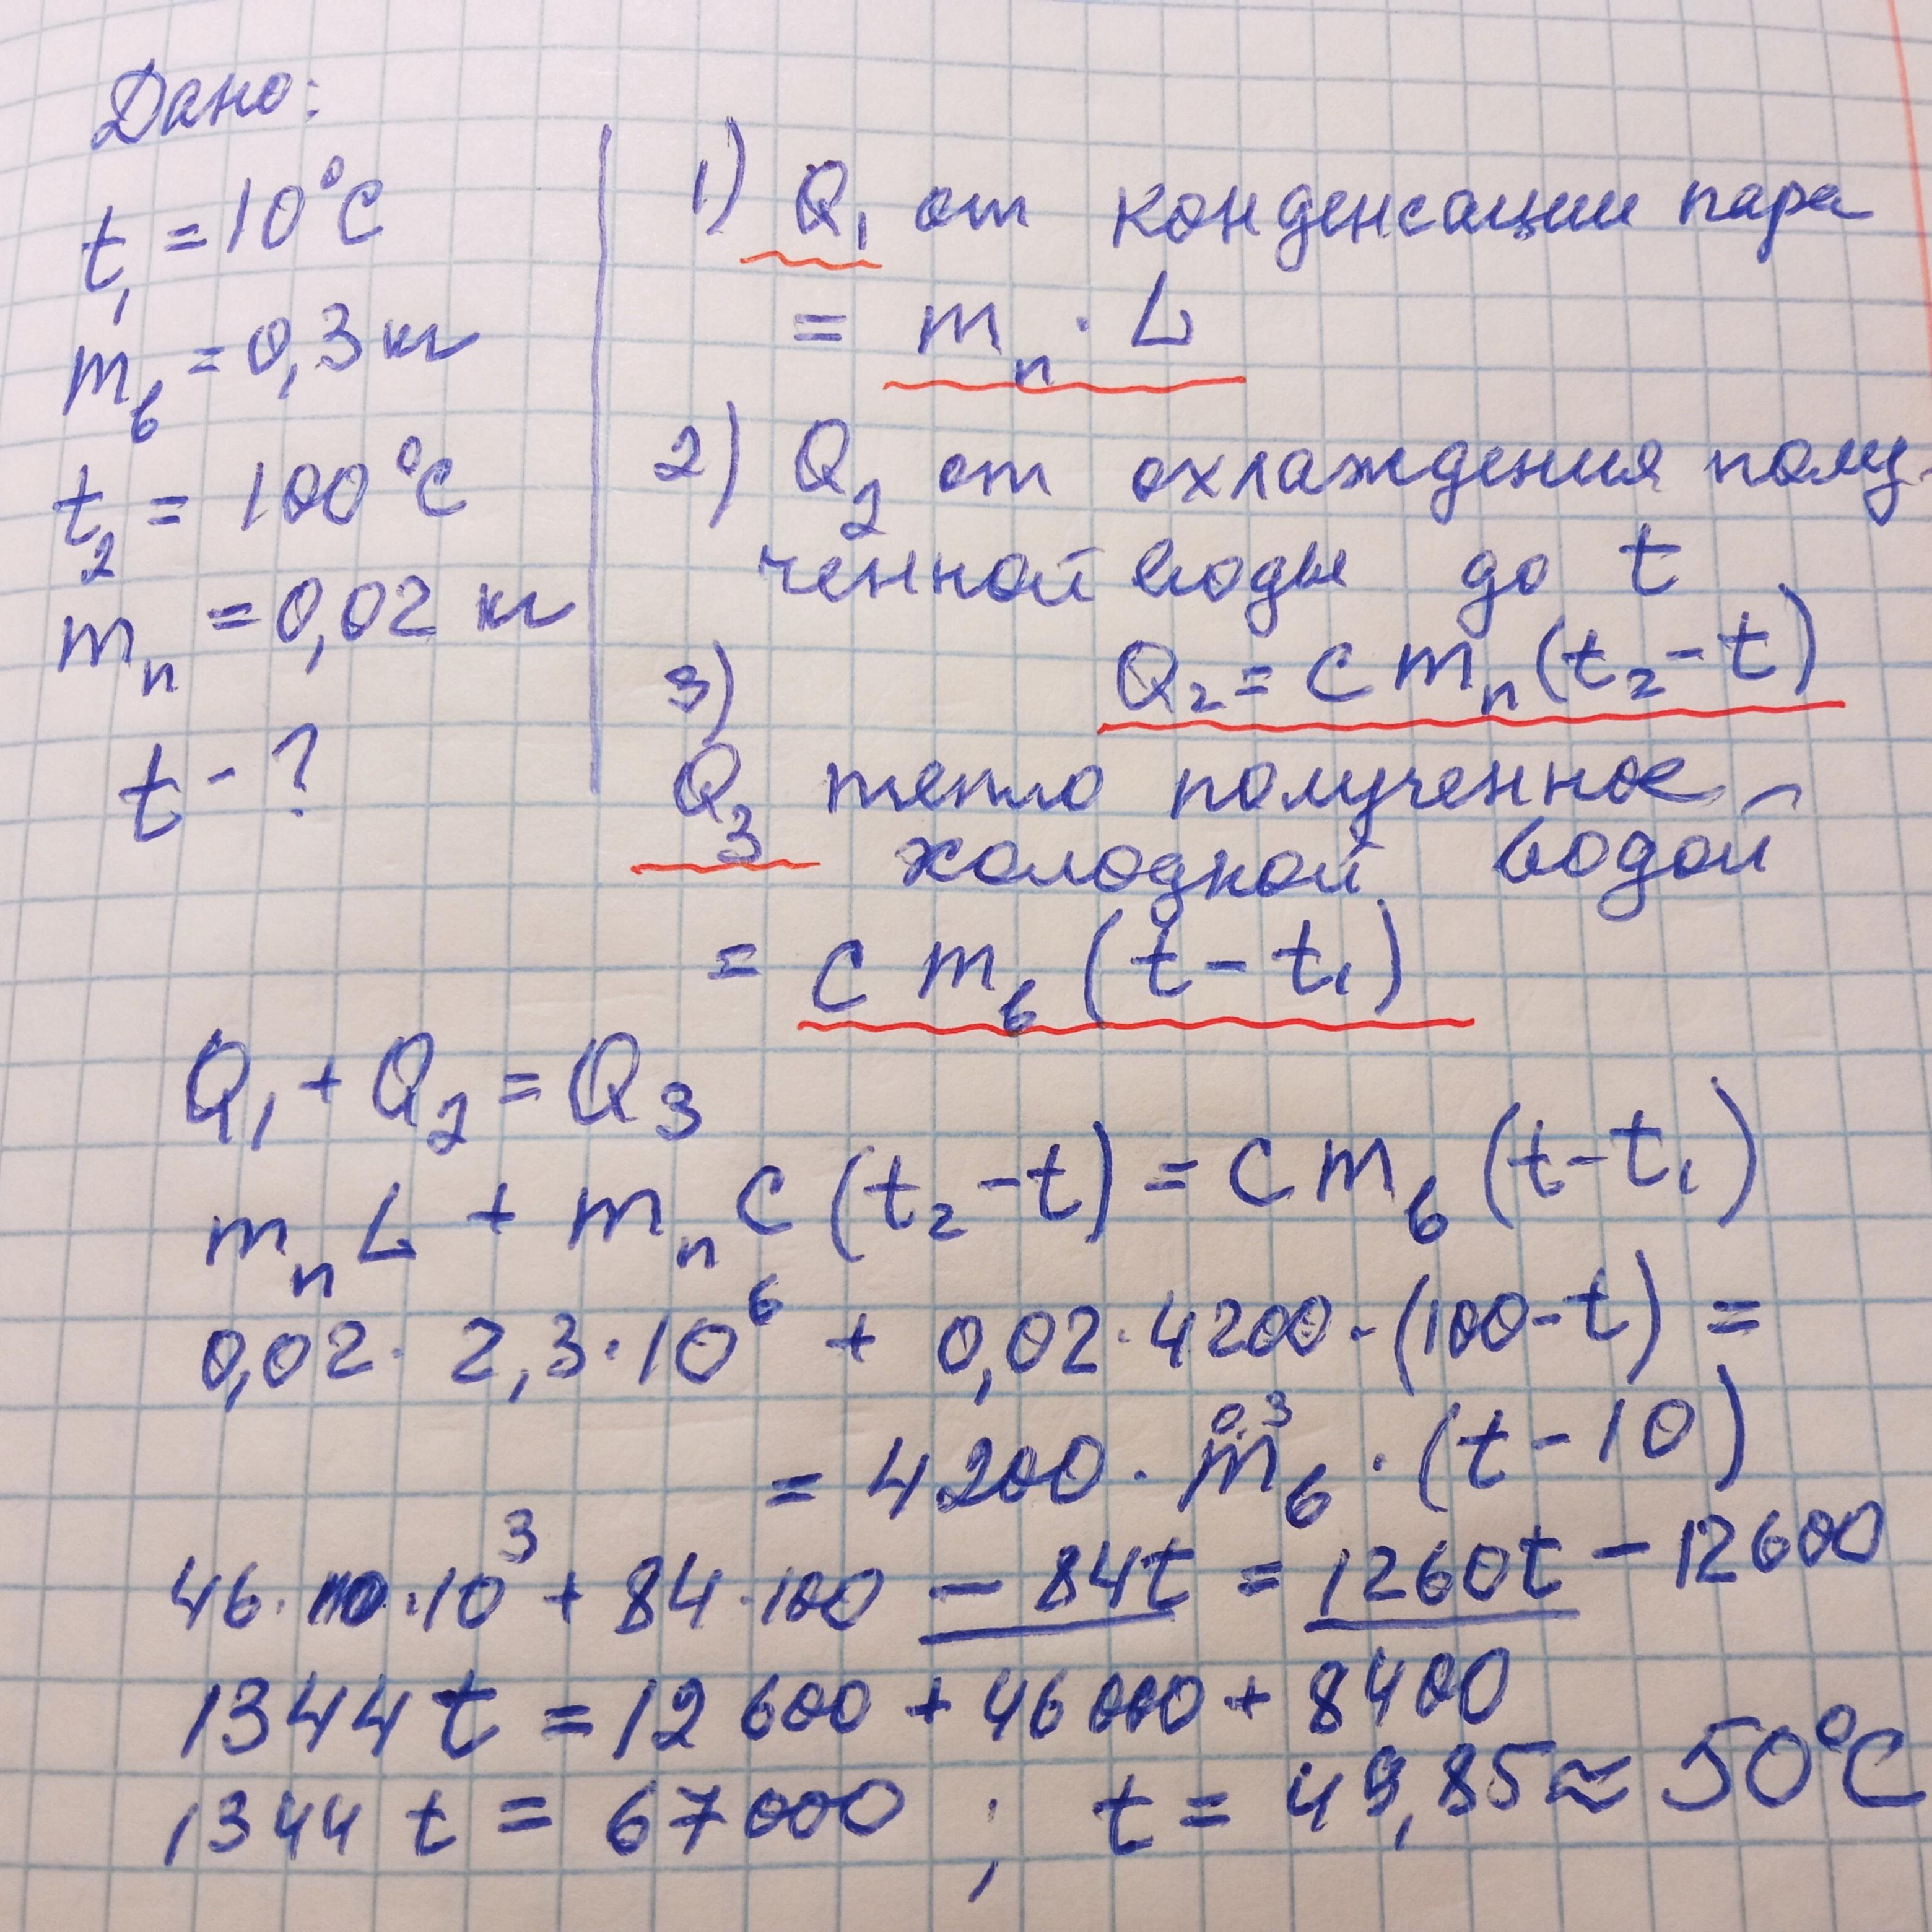 Дано:
t₁ = 10°C
mв = 0,3 кг
t₂ = 100°C
mп = 0,02 кг
t - ?
1) Q₁ от конденсации пара
= mп · L
2) Q₂ от охлаждения полу-
ченной воды до t
Q₂ = c mп (t₂ - t)
3)
Q₃ тепло полученное
холодной водой
= c mв (t - t₁)
Q₁ + Q₂ = Q₃
mп L + mп c (t₂ - t) = c mв (t - t₁)
0,02 · 2,3 · 10⁶ + 0,02 · 4200 · (100 - t) =
0,3
= 4200 · mв · (t - 10)
46 · 10³ + 84 · 100 - 84t = 1260t - 12600
1344 t = 12 600 + 46 000 + 8400
1344 t = 67 000 ; t = 49,85 ≈ 50°C